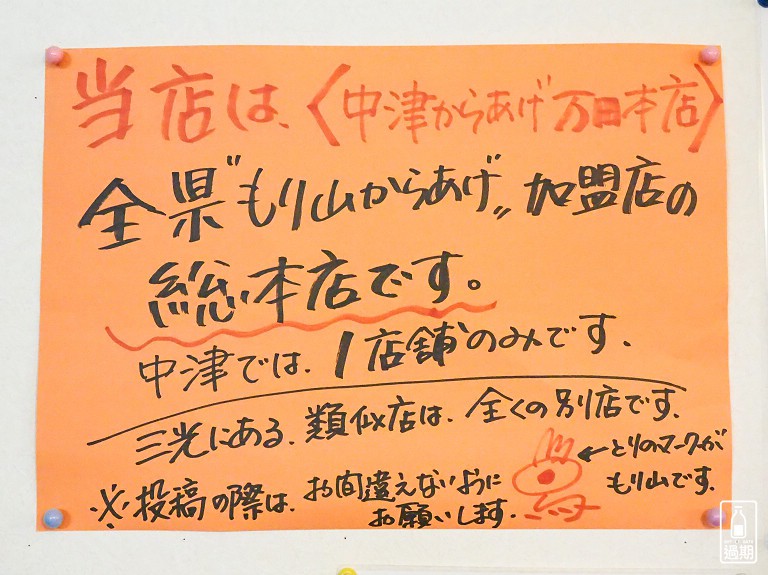 当店は、〈中津からあげ万田本店〉
全県"もり山からあげ"加盟店の
総本店です。
中津では、1店舗のみです、
三光にある、類似店は、全くの別店です、
←とりのマークが
もり山です、
※投稿の際は、お間違えないように
お願いします、
過期